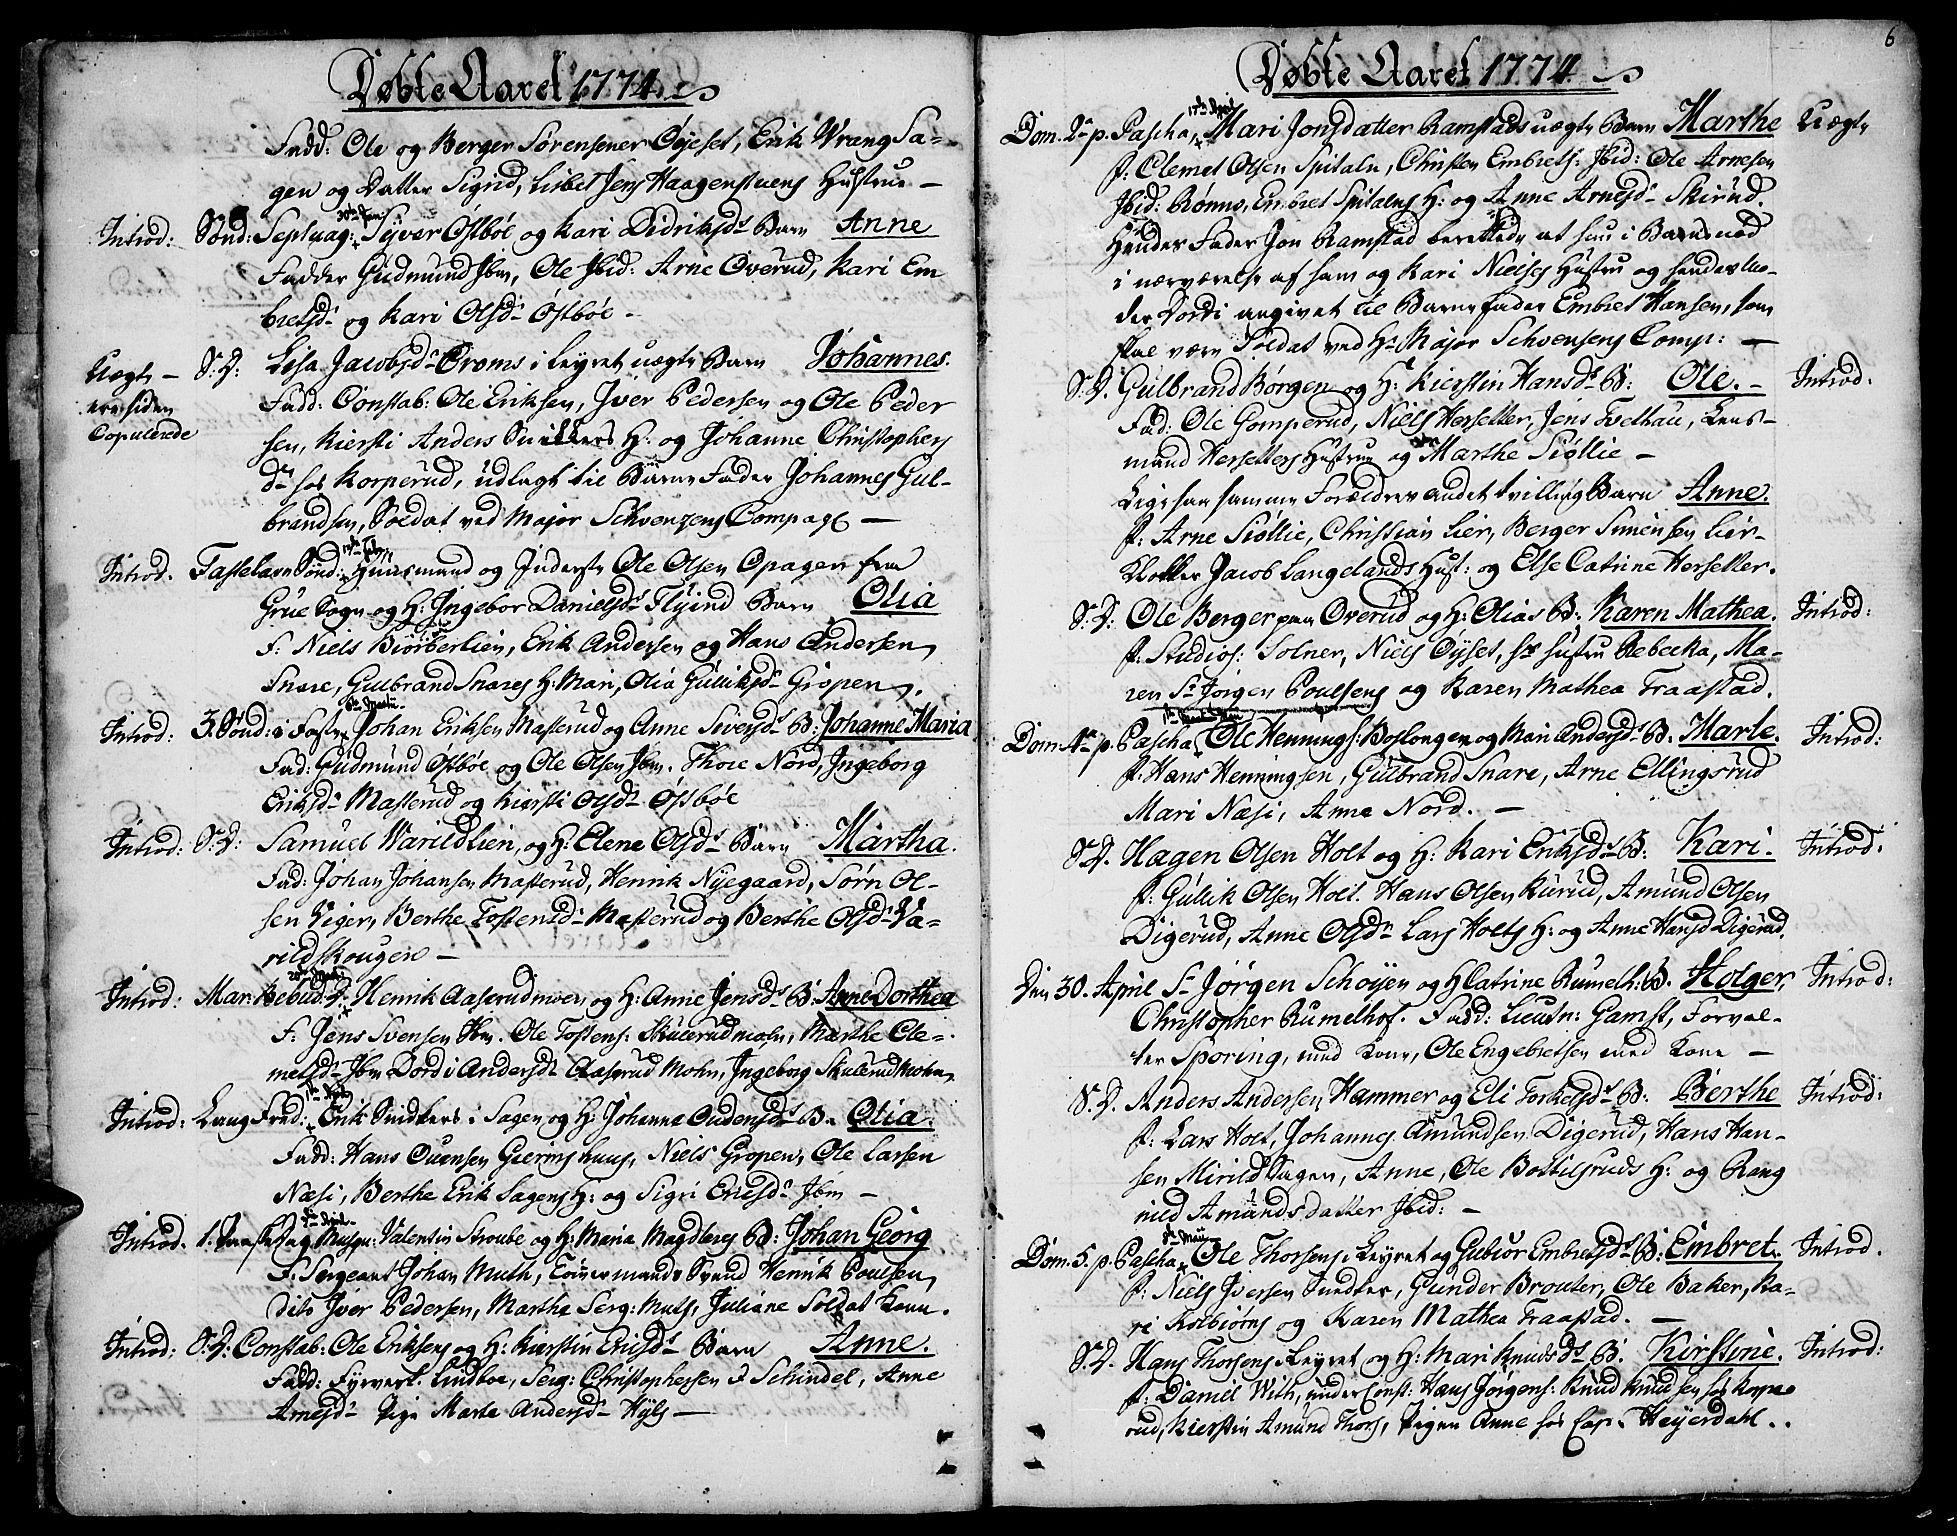 Døbte Aaret 1774.
Fadd: Ole og Berger Sørensener Øyeset, Erik Wrang Sa-
gen og Datter Sigrid, Lisbet Jens Haagenstuens Hustrue -
Introd: Sønd: Septuag: 30te Jan: Sejver Østbøe og Kari Didriksdr Barn Anne
Fadder Gudmund Ibm, Ole Ibid: Arne Overud, Kari Em
bretsdr og Kari Olsdr Østbøe -
Uægte - S: D: Lisa Jacobsdr Croms i Leyret uægte Barn Johannes.
ere siden Fadd: Constab: Ole Eriksen, Iver Pedersen og Ole Peder
Copulerede sen, Kiersti Anders Snikkers H: og Johanne Christophers
dr hos Korperud, udlagt til Barne Fader Johannes Gul-
brandsen, Soldat ved Major Schvenzens Compag: -
Introd. Fastelavn Sønd: Huusmand og Inderste Ole Olsen Opagen fra
Grue Sogn og H: Ingebor Danielsdr Flyind Barn Olia
F: Niels Biørberlien, Erik Andersen og Hans Andersen
Snare, Gulbrand Snares H: Mari, Olia Gulliksdr Gropen.
Introd: 3. Sønd: i Faste Johan Eriksen Masterud og Anne Siversdr B: Johanne Maria
Fad: Gudmund Østbøe og Ole Olsen Ibm. Thore Nord, Ingeborg
Eriksdr Masterud og Kiersti Olsdr Østbøe
Introd: S: D: Samuel Warildlien, og H: Elene Olsdr Barn Martha.
Fad: Johan Johansen Masterud, Henrik Nyegaard, Sørn Ol-
sen Viger, Berthe Tostensdr Masterud og Berthe Olsdr Va-
rildskougen -
Introd: Mar: Bebud: D: Henrik Aaserudmoen og H: Anne Jensdr B: Anne Dorthea
F: Jens Svensen Ibm. Ole Tostens: Skulerudmoen, Marthe Cle-
metsdr Ibm Dordi Andersdr Aaserud Mohn, Ingeborg Skulerudmohn.
Introd: Lang Fred: Erik Snidkers i Sagen og H: Johanna Oudensdr B. Olia.
Fadd: Hans Ouensen Gierinshuus, Niels Gropen, Ole Larsen
Næsi, Berthe Erik Sagens H: og Sigri Ericsdr Ibm -
Introd. 1. Paaske Dag Valentin Stroube og H: Maria Magdlens B: Johan Georg
F: Sergeant Johan Muth, Tømmermands Svend Henrik Poulsen,
dito Iver Pedersen, Martha Serg: Muts, Juliane Soldat Kone.
Introd: S: D: Constab: Ole Eriksen og H: Kierstin Ericsdr Barn Anne.
Fadd: Fyrverk: Lindboe, Serg: Christophersen I Schindel, Anne
Arnesdr Pige Marte Andersdr Hyls -
6
Døbte Aaret 1774.
Dom. 2da p. Pascha, 17de April Mari Jonsdatter Ramstads uægte Barn Marthe Uægte
F: Clemet Olsen Spitaln, Christen Embrets: Ibid: Ole Arnesen
Ibid: Rønnes, Embret Spitalens H: og Anne Arnesdr Skirud.
Hendes Fader Jon Ramstad berettede at hun i Barns nød
i nærværelse af ham og Kari Nielses Hustru og hendes Mo-
der Dordi angivet til Barne Fader Embret Hansen, som
skal være Soldat ved Hr Major Schvensens Comp: -
S: D. Gulbrand Børgen og H: Kierstin Hansdr B: Ole. - Introd:
Fad: Ole Gomperud, Niels Herseter, Jens Tvethau, Lens-
mand Hersetters Hustrue og Marthe Siøllie -
Ligesaa samme Forældres andet tvilling Barn Anne.
F: Arne Siøllie, Christian Lier, Berger Simensen Lier-
Klokker Jacob Langelands Hust: og Else Catrine Herseter.
S: D: Ole Berger paa Overud og H: Olias B: Karen Mathea. Introd:
F: Studios: Solner, Niels Øyset, hs Hustru Rebecka, Ma-
ren Sr Jørgen Poulsens og Karen Mathea Traastad.
Dom: 4de p. Pascha Ole Hennings: Boslongen og Mari Andersdr B. Marte. Introd:
F: Hans Henningsen, Gulbrand Snare, Arne Ellingsrud
Mari Næsi, Anne Nord. -
S: D. Hagen Olsen Holt og H: Kari Eriksdr B: Kari. Introd:
F: Gulik Olsen Holt. Hans Olsen Rurud, Amund Olsen
Digerud, Anne Olsdr Lars Holts H: og Anne Hansd Digerud.
Den 30. April Sr Jørgen Schøyen og H Catrine Rumelh: B. Holger Introd:
Christopher Rumelhof. Fadd: Lieutn: Gamst, Forval-
ter Sporing, med Kone, Ole Engebretsen med Kone -
S: D. Anders Andersen Hammer og Eli Torkelsdr B: Berthe Introd:
F: Lars Holt, Johannes Amundsen Digerud, Hans Han-
sen Mirild Sagen, Anne, Ole Bottilsruds H: og Rang
nild Amunds datter Ibid: -
Dom. 5. p. Pascha Ole Thorsens i Leyret og Gubiør Embretsdr B: Embret. Introd.
F: Niels Iversen Snedker, Gunder Brouter, Ole Baker, Ka-
ri Kolbiørns og Karen Mathea Traastad. -
S: D. Hans Thorsens i Leyret og H: Mari Knudsdr B. Kirstine. Introd:
F: Daniel With, under Const: Hans Jørgens: Knud Knudsen hos Korpe-
rud, Kierstin Amund Thors, Pigen Anne hos Cap. Heyerdahl.